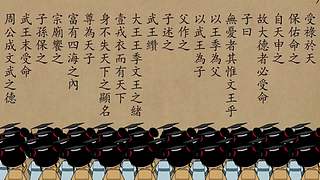 受祿於天
保佑命之
自天申之
故大德者必受命
子曰
無憂者其惟文王乎
以王季為父
以武王為子
父作之
子述之
武王纘
大王王季文王之緒
壹戎衣而有天下
身不失天下之顯名
尊為天子
富有四海之內
宗廟饗之
子孫保之
武王末受命
周公成文武之德